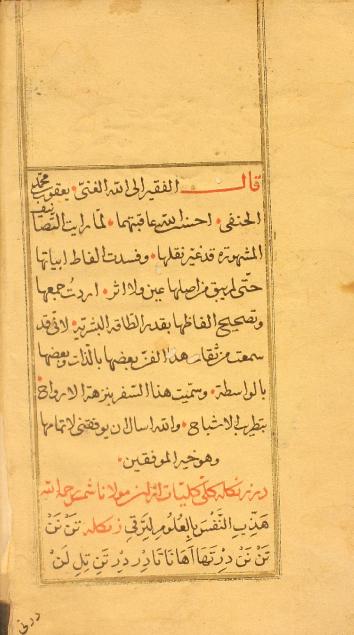 قال الفقير الى الله الغنى يعقوب محمد
الحنفى احسن الله عاقبتهما لما رايت التصانيف
المشهورة قد غير نقلها وفسدت الفاظ ابياتها
حتى لم يبق من اصلها عين ولا اثر اردت جمعها
وتصحيح الفاظها بقدر الطاقه البشرية لانى قد
سمعت من ثقات هذا الفن بعضها بالذات وبعضها
بالواسطة وسميت هذا السفر بنزهة الارواح
بتطرب الاشباح والله اسال ان يوفقنى لاتمامها
وهو خير الموفقين
در زنكله كل كليات مولانا شمس رحمه الله
هَذِّبِ النَّفْسَ بِالعُلُومِ لِتَرْقِي زنكله تَنْ نَنْ
تَنْ نَنْ دِرْتَهَا آهَا نَا تَا دِرْ دِرْ تَنِ تِلِ لَنْ